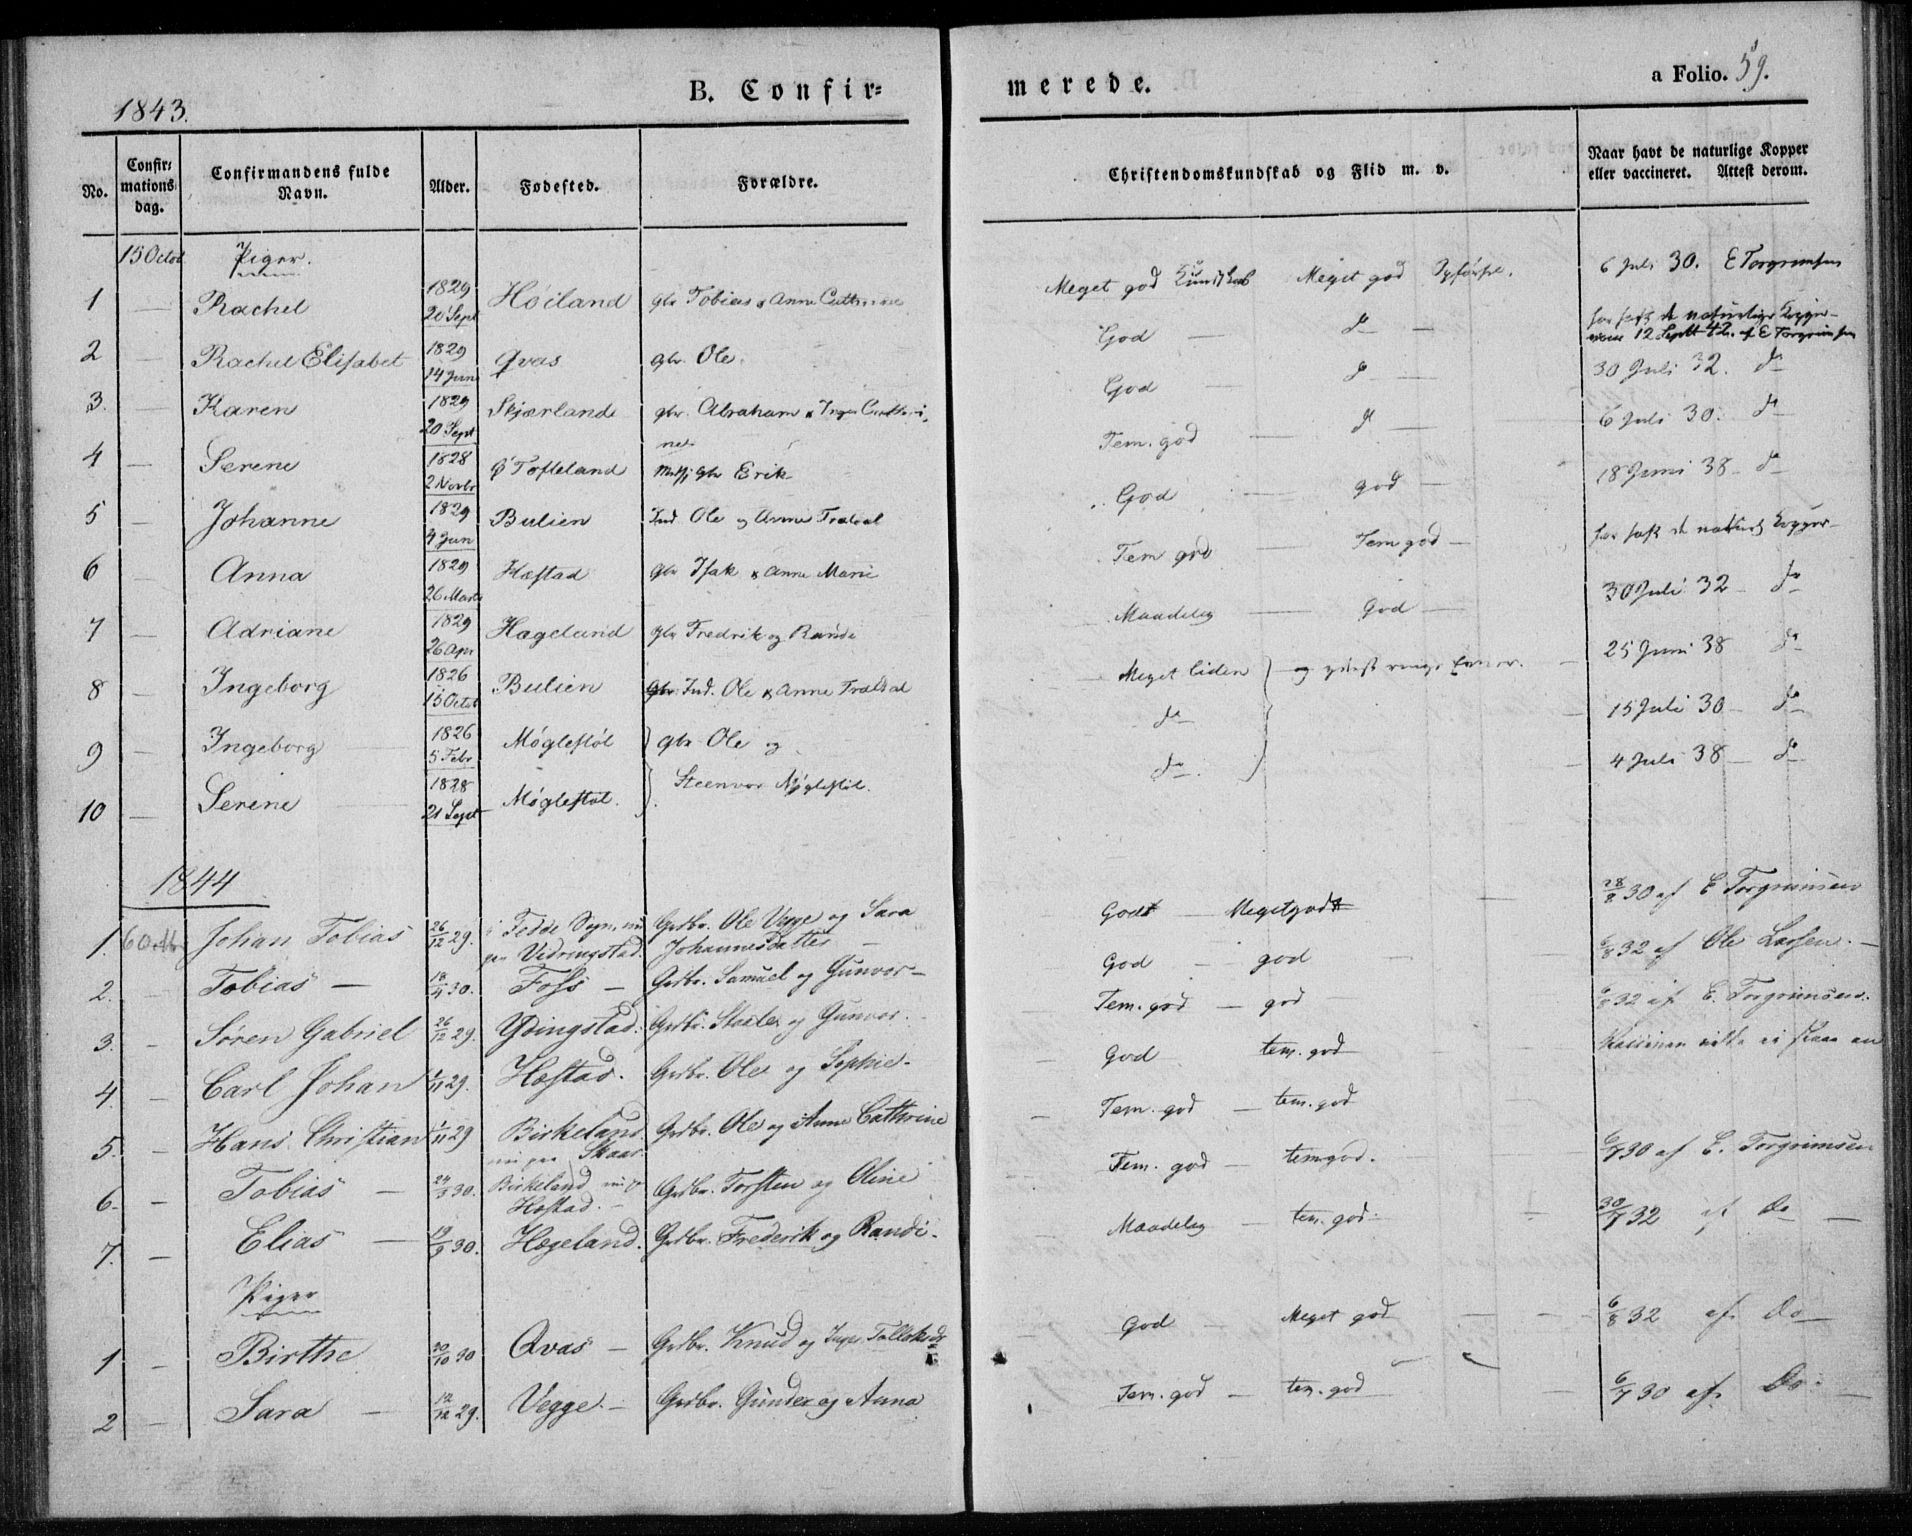 1843.
B. Confir=
merede.
a Folio. 59.
No.
Confir=
mations
dag.
Confirmandens fulde
Navn.
Alder.
Fødested.
Forældre.
Christendomskundskab og Flid m. v.
Naar havt de naturlige Kopper
eller vaccineret. Attest derom.
15 Octob Piger.
1 — Rachel 1829 20 Sept Høiland gbr Tobias & Anne Cathrine Meget god Kundskab Meget god Opførsel. 6 Juli 30. E Torgrimsen
2 — Rachel Elisabet 1829 14 Juni Qvas gbr. Ole. God — do — har havt de naturlige Kopper
12 Septr 42. af E Torgrimsen
3. — Karen 1829 20 Sept Skjærlande gbr. Abraham & Inger Cathri- God — do — 30 Juli 32. do
ne
4 — Serene 1828 2 Novbr Ø Tofteland gbr Erik Tem. god — do — 6 Juli 30. do
5 — Johanne 1829 4 Jan Bulien Ind Ole og Anne Trældal God — god — 18 Juni 38 — do
6 — Anna 1829 26 Marts Hæstad gbr Isak & Anne Marie Tem god — Tem god — har havt de naturl Kopper
7 — Adriane 1829 26 Apr Hægeland gbr Fredrik og Randi Maadelig — God — 30 Juli 32 — do
8 — Ingeborg 1826 15 Octob Bulien Ind. Ole & Anne Trældal Meget liden } og ringe Evner. 25 Juni 38 do
9 — Ingeborg 1826 5 Febr Møglestøl } gbr Ole og do 15 Juli 30 — do
10 — Serine 1828 21 Sept Møglestøl. } Steenvor Møglestøl. do 4 Juli 38 — do
1844
1. 6 Octbr Johan Tobias 26/12 29. i Fedde Sogn, nu Grdbr. Ole Vegge og Sara Godt — Meget godt 28/8 30 af E Torgrimsen
paa Vidringstad. Johannesdatter —
2. — Tobias — 18/4 30. Foss — Grdbr. Samuel og Gunvor — God — god 6/8 32 af Ole Larsen. —
3. — Søren Gabriel 26/12 29. Ydingstad. Grdbr. Staale og Gunvor. Tem. god — god 6/8 32 af E. Torgrimsen.
4. — Carl Johan 1/11 29. Hæstad. Grdbr. Ole og Sophie — God tem. god Vaccinen vilde ei slaae an
5. — Hans Christian 1/11 29 Birkeland Grdbr. Ole og Anne Cathrine Tem. god — tem. god
nu paa Skaar
6 — Tobias — 24/3 30. Birkeland nu p. Grdbr. Torsten og Oline Tem. god — tem god. 6/7 30 af E. Torgrimsen
Hæstad. —
7. — Elias — 19/9 30. Hægeland. Grdbr. Frederik og Randi. Maadelig — tem. god. 30/7 32 af Do —
Piger
1 — Birthe 30/10 30 Qvas — Grdbr. Knud og Inger Tallaksdr God — Meget god 6/8 32 af Do
2 — Sara — 12/12 29. Vegge. — Grdbr. Gunder og Anna Tem. god — tem. god 6/7 30 af Do. —